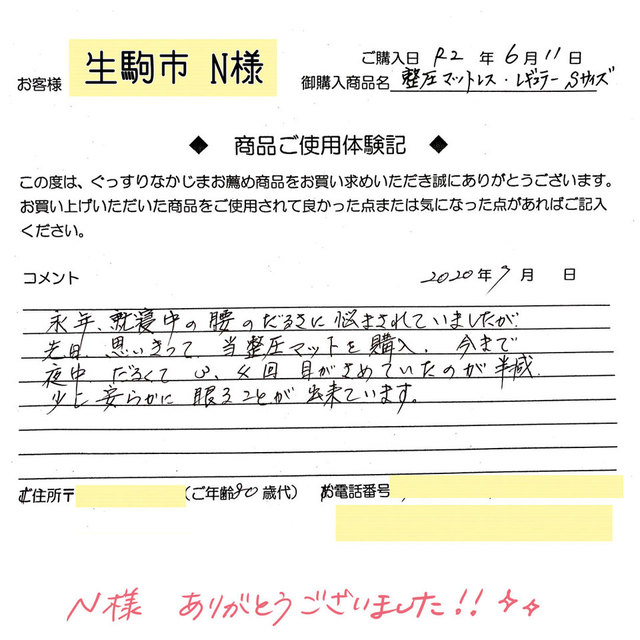 ご購入日 R2 年 6月 11日
お客様 生駒市 N様
御購入商品名 整圧マットレス・レギュラー Sサイズ
◆ 商品ご使用体験記 ◆
この度は、ぐっすりなかじまお薦め商品をお買い求めいただき誠にありがとうございます。
お買い上げいただいた商品をご使用されて良かった点または気になった点があればご記入
ください。
コメント 2020年 7月 日
永年、就寝中の腰のだるさに悩まされていましたが
先日、思いきって 当整圧マットを購入、今まで
夜中 だるくて 3、4回 目がさめていたのが半減
少し安らかに 眠ることが出来ています。
ご住所〒 (ご年齢 歳代) お電話番号
N様 ありがとうございました!!